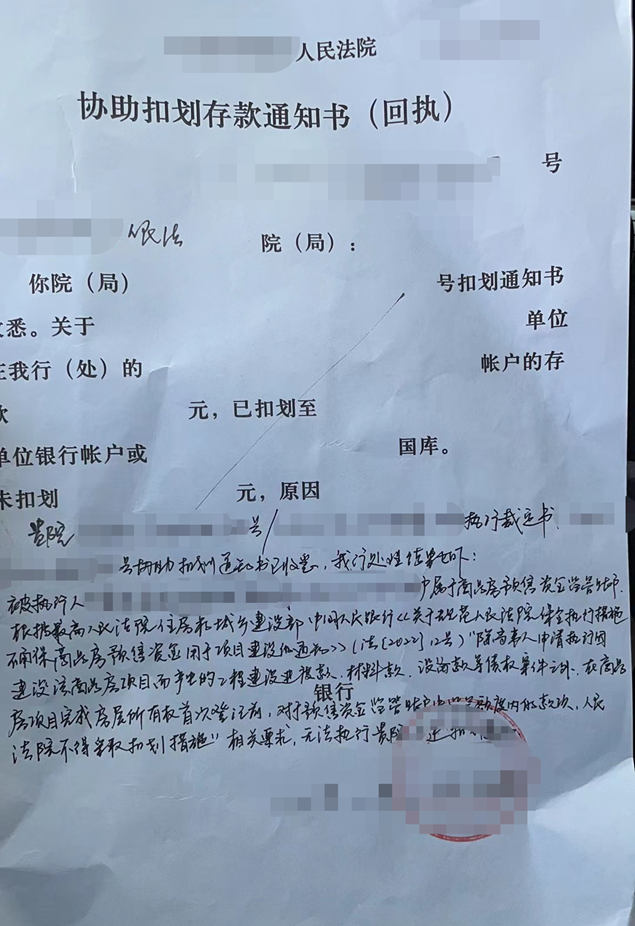 人民法院
协助扣划存款通知书（回执）
号
人民法 院（局）：
你院（局） 号扣划通知书
悉。关于 单位
在我行（处）的 帐户的存
款 元，已扣划至
单位银行帐户或 国库。
未扣划 元，原因
贵院 号 执行裁定书、
号协助扣划通知书已收悉，我行处理结果如下：
被执行人 户属于商品房预售资金监管账户.
根据最高人民法院住房和城乡建设部中国人民银行《关于规范人民法院保全执行措施
确保商品房预售资金用于项目建设的通知》(法〔2022〕12号)"除当事人申请执行因
建设该商品房项目而产生的工程建设进度款、材料款、设备款等债权案件之外，在商品
银行
房项目完成房屋所有权首次登记前，对于预售资金监管账户中监管额度内的款项，人民
法院不得采取扣划措施"相关要求，无法执行贵院